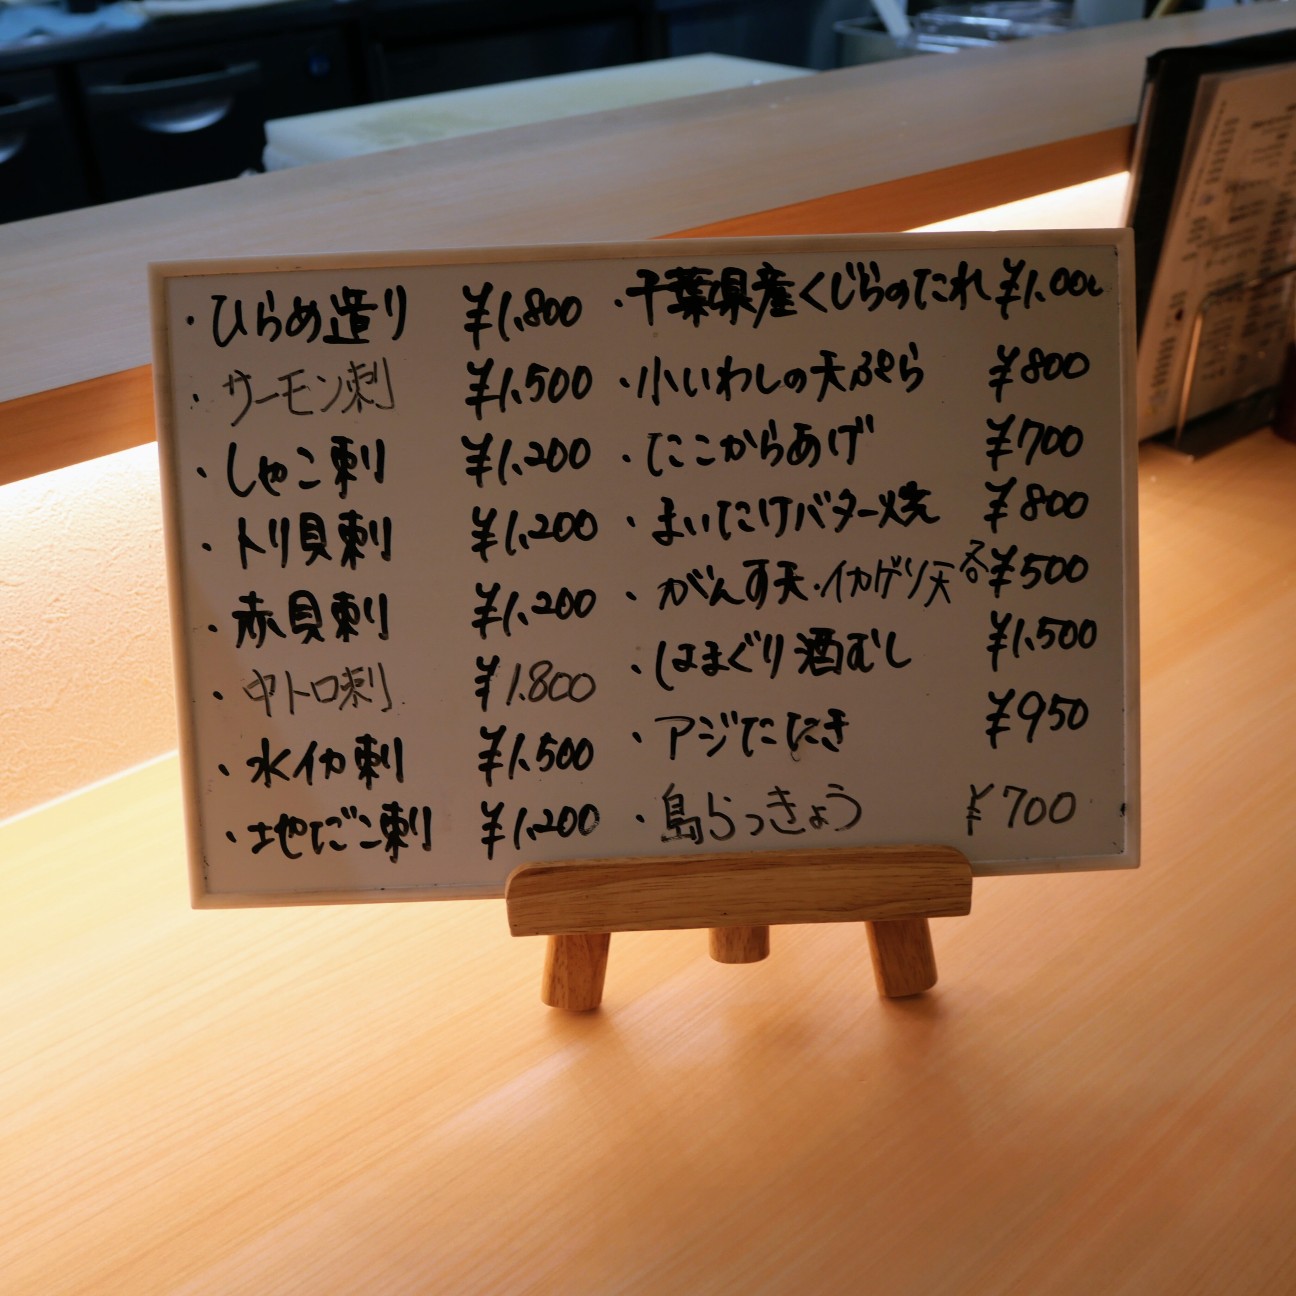 ・ひらめ造り ¥1,800
・サーモン刺 ¥1,500
・しゃこ刺 ¥1,200
・トリ貝刺 ¥1,200
・赤貝刺 ¥1,200
・中トロ刺 ¥1.800
・水イカ刺 ¥1,500
・地だこ刺 ¥1,200
・千葉県産くじらのたれ ¥1,000
・小いわしの天ぷら ¥800
・たこからあげ ¥700
・まいたけバター焼 ¥800
・がんす天・イカゲソ天 各¥500
・はまぐり酒むし ¥1,500
・アジたたき ¥950
・島らっきょう ¥700